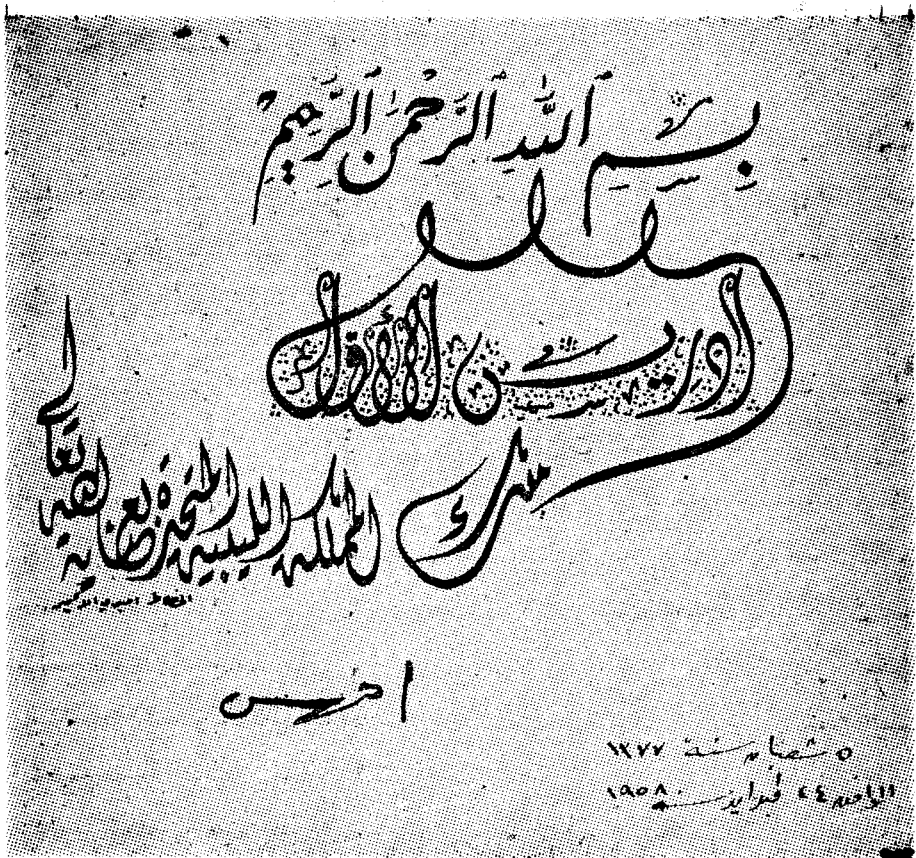 بِسْمِ اللَّهِ الرَّحْمَٰنِ الرَّحِيمِ
ادريس الأول
ملك المملكة الليبية المتحدة بعناية الله تعالى
ادريس
٥ شعبان سنة ١٣٧٧
الموافق ٢٤ فبراير سنة ١٩٥٨